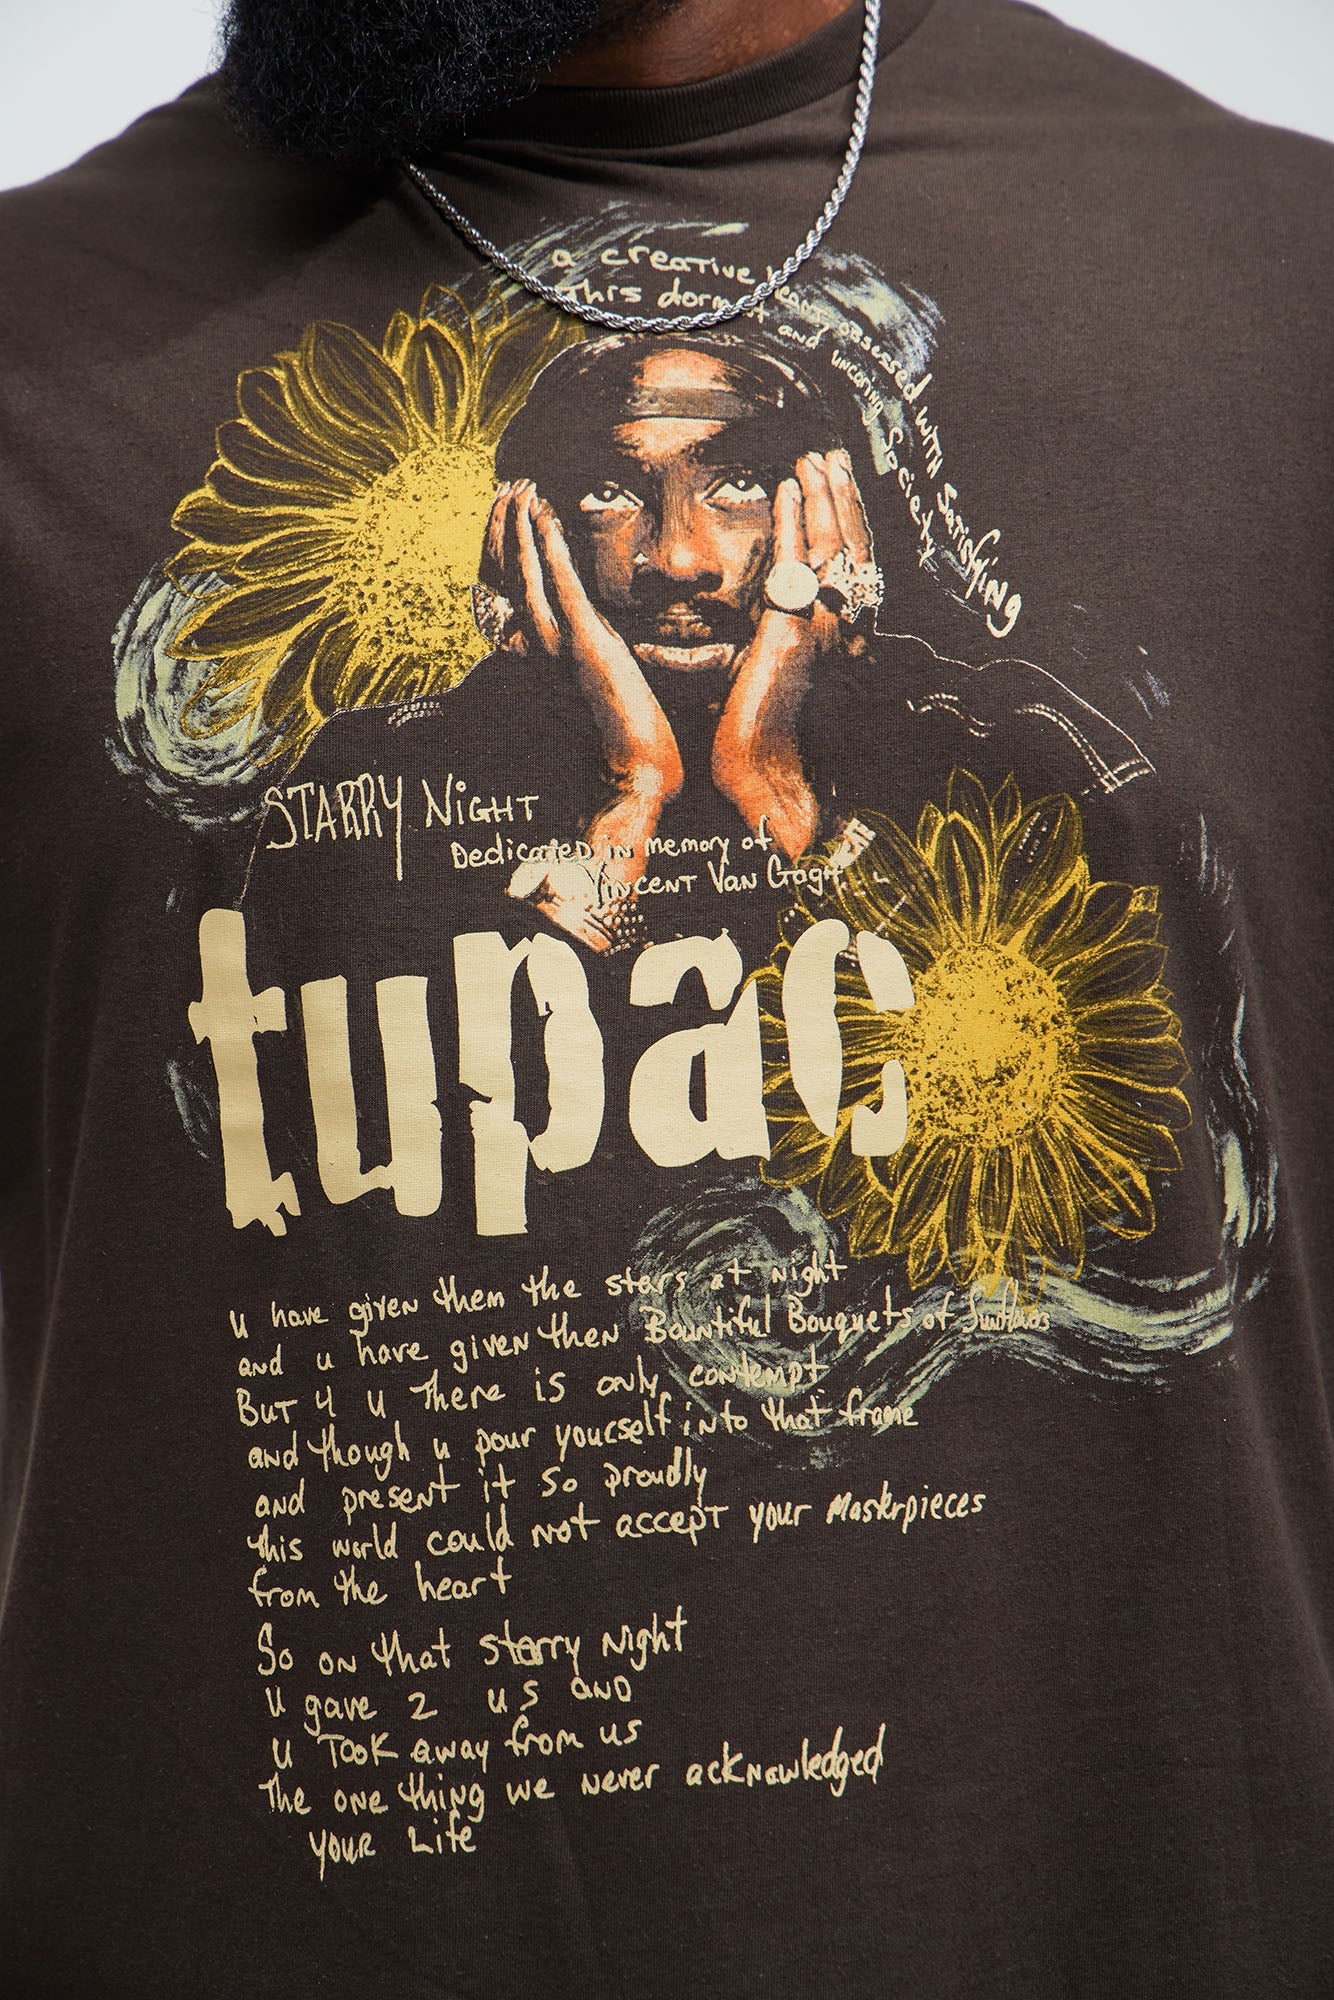 a creative heart, obsessed with satisfying
This dormant and uncaring Society
STARRY NiGHT
Dedicated in memory of
Vincent Van Gogh
tupac
u have given them the stars at night
and u have given then Bountiful Bouquets of Sunflowers
But 4 u There is only contempt
and though u pour yourself into that frame
and present it so proudly
this world could not accept your Masterpieces
from the heart
So on that starry night
u gave 2 us and
u Took away from us
The one thing we never acknowledged
your Life